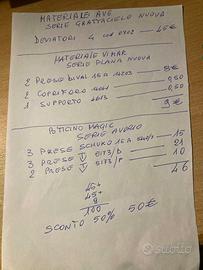 MATERIALE AVE
SERIE GRATTACIELO NUOVA
DEVIATORI 4 COD 45€
MATERIALE VIMAR
SERIE PLANA NUOVA
2 PRESE BIVAL 16A 14203 8€
2 COPRIFORO 0,50
1 SUPPORTO 14613 0,50
9€
BTICINO MAGIC
SERIE AVORIO
3 PRESE SCHUKO 16A 15
3 PRESE 21
2 PRESE 10
46
45+
45+
9
100
SCONTO 50% 50€
Subito